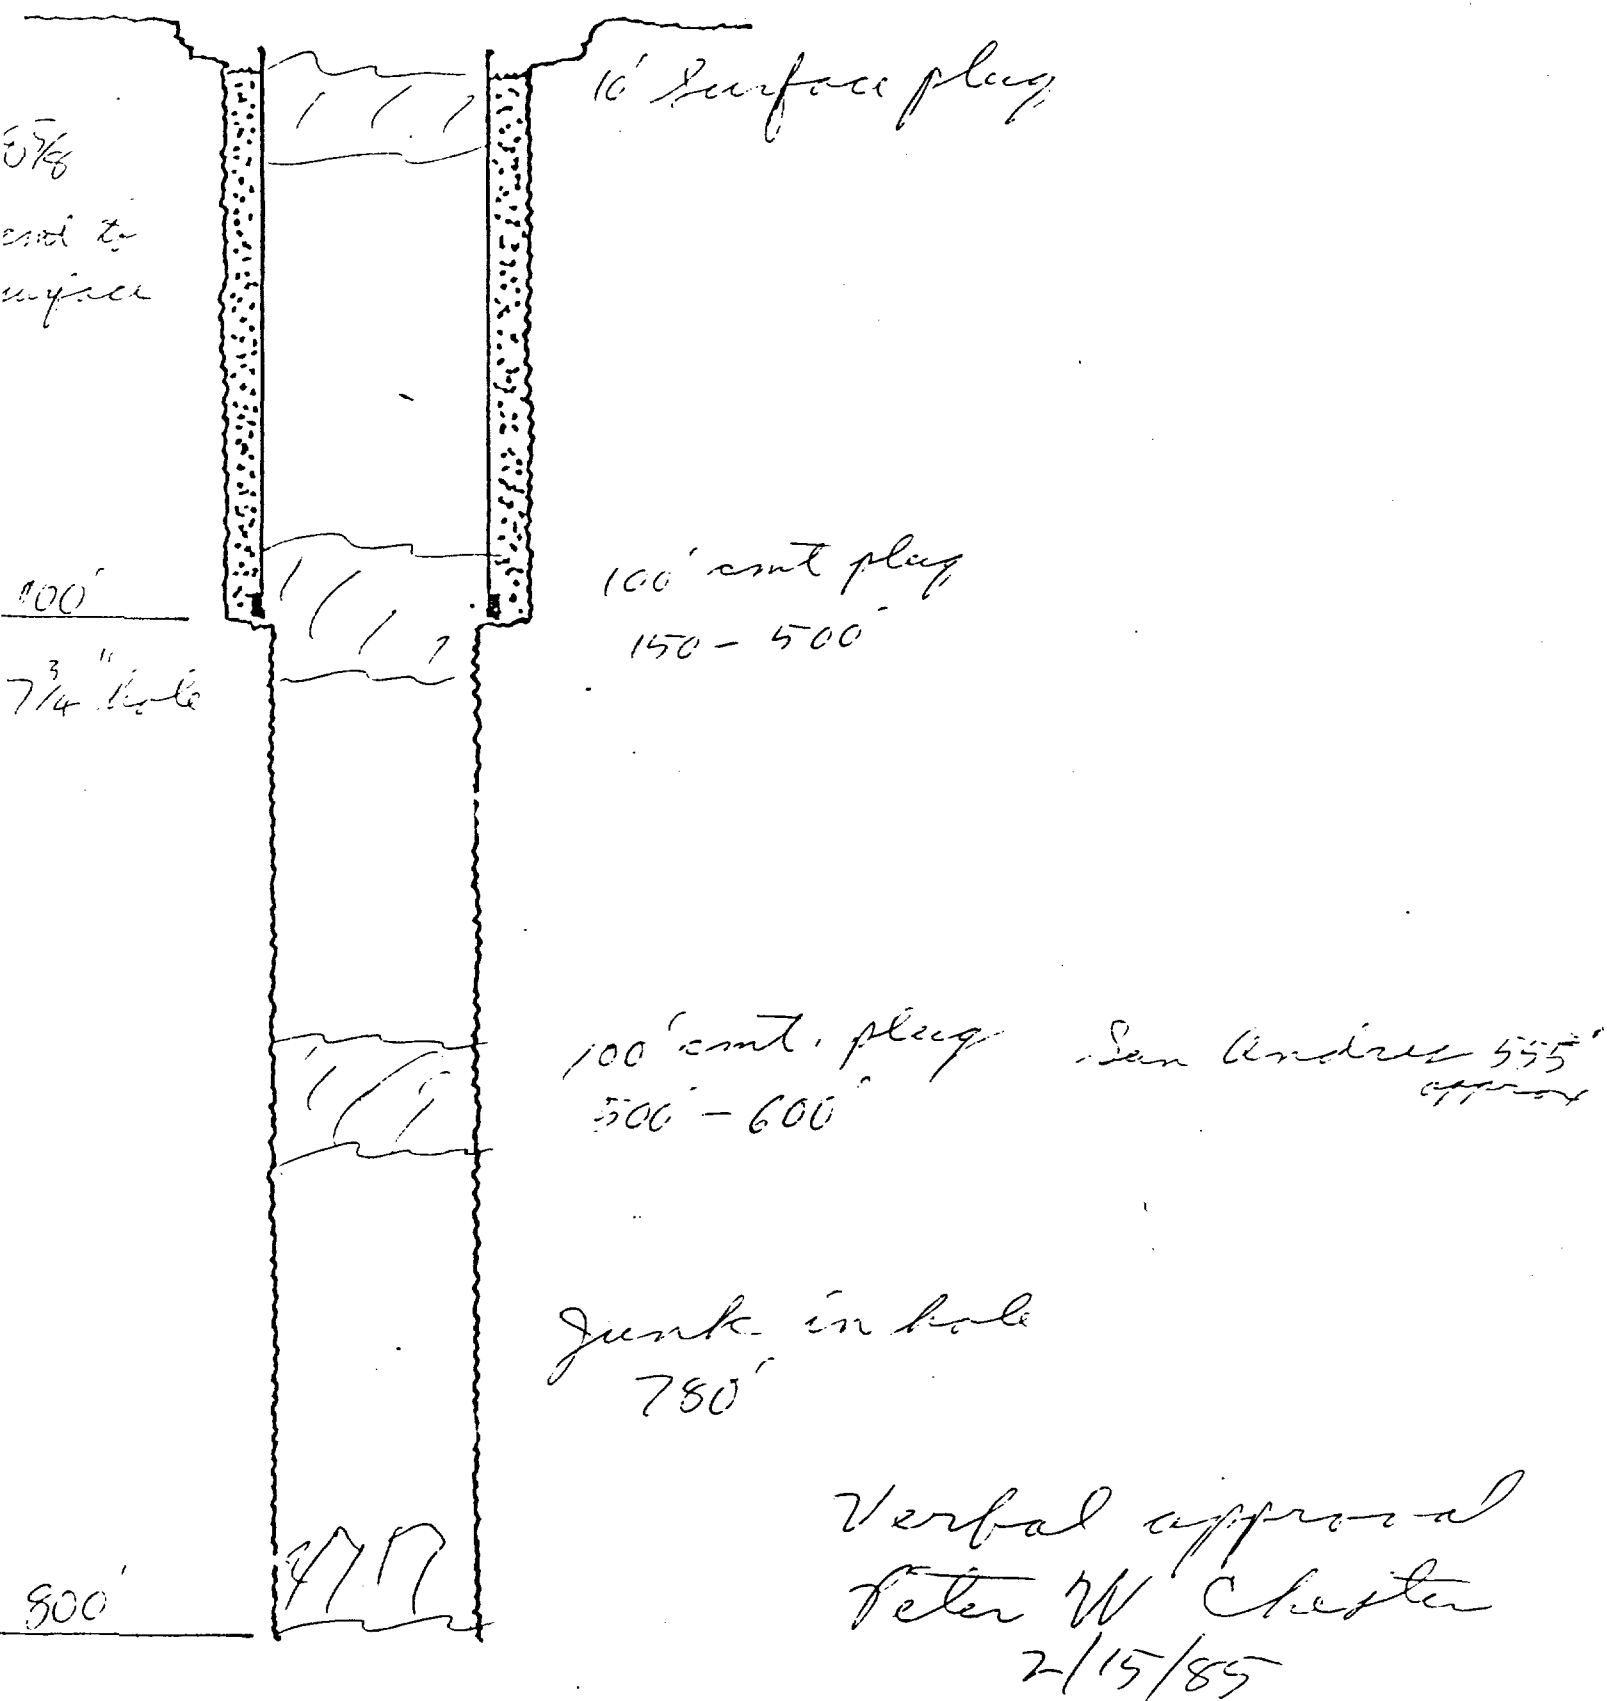 10' Surface plug
8 5/8
cmt to
surface
100' cmt plug
150 - 500'
400'
7 3/4" hole
100' cmt. plug
500' - 600'
San Andres 555'
approx
Junk in hole
780'
800'
Verbal approval
Peter W Chester
2/15/85